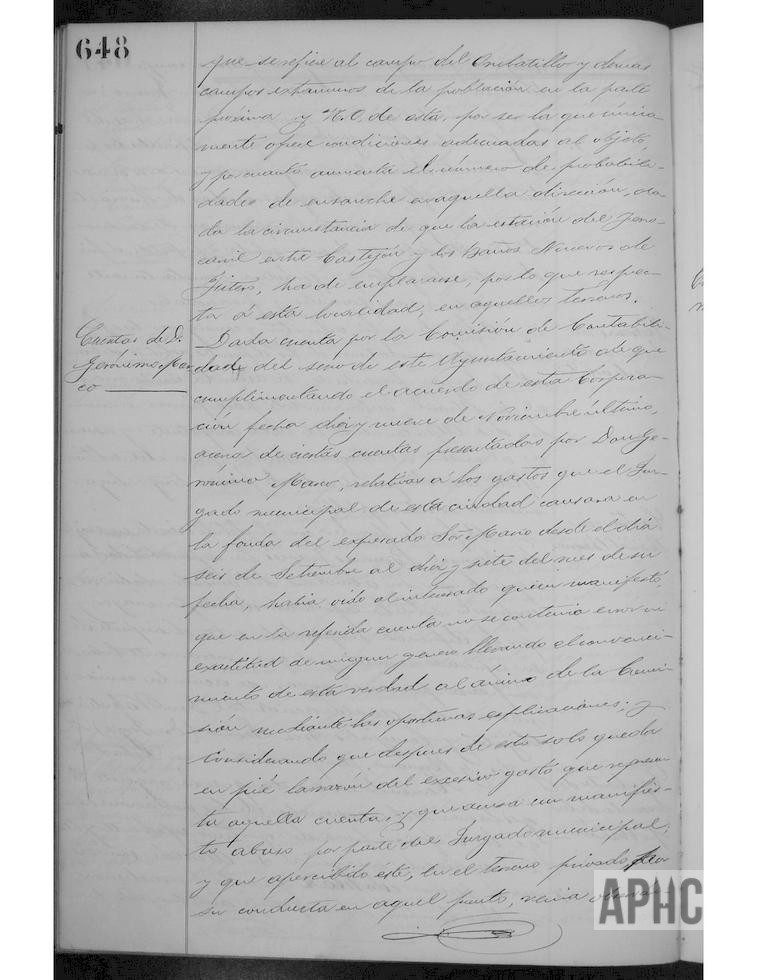 648
que se refiere al campo del Ondatillo y demas
campos extramuros de la población en la parte
próxima y N.O. de esta, por ser la que única-
mente ofrece condiciones adecuadas al objeto
y por cuanto aumenta el número de probabili-
dades de ensanche en aquella dirección, da-
da la circunstancia de que la estación del ferro-
carril entre Castejón y los Baños Nuevos de
Fitero, ha de emplazarse, por lo que respec-
ta á esta localidad, en aquellos terrenos.
Cuentas de D.
Gerónimo Mar-
co
Dada cuenta por la Comisión de Contabili-
dad, del seno de este Ayuntamiento de que
cumplimentando el acuerdo de esta Corpora-
ción fecha diez y nueve de Noviembre último,
acerca de ciertas cuentas presentadas por Don Ge-
rónimo Marco, relativas á los gastos que el Juz-
gado municipal de esta ciudad causara en
la fonda del expresado Sor Marco desde el dia
seis de Setiembre al diez y siete del mes de su
fecha, habia oido al interesado quien manifestó
que en la referida cuenta no se contenia error ni
exactitud de ningun genero llevando el convenci-
miento de esta verdad al ánimo de la Comi-
sión mediante las oportunas explicaciones; y
Considerando que despues de esto solo queda
en pié la razón del excesivo gasto que represen-
ta aquella cuenta, y que acusa un manifies-
to abuso por parte del Juzgado municipal;
y que apercibido éste, en el terreno privado, por
su conducta en aquel punto, venia
APHC